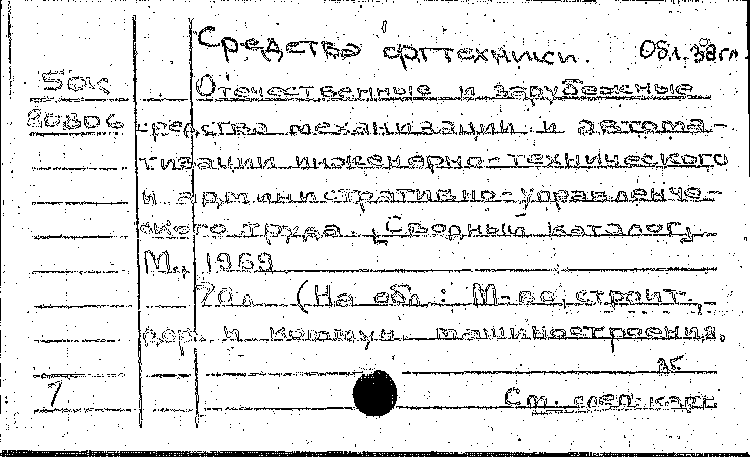 Средства оргтехники. Обл. загл.
5ок Отечественные и зарубежные
20806 средства механизации и автома-
тизации инженерно-технического
и административно-управленче-
ского труда. [Сводный каталог]
М., 1969
70л (На обл.: М-во строит.,
дор. и коммун. машиностроения.
1 См. след. карт